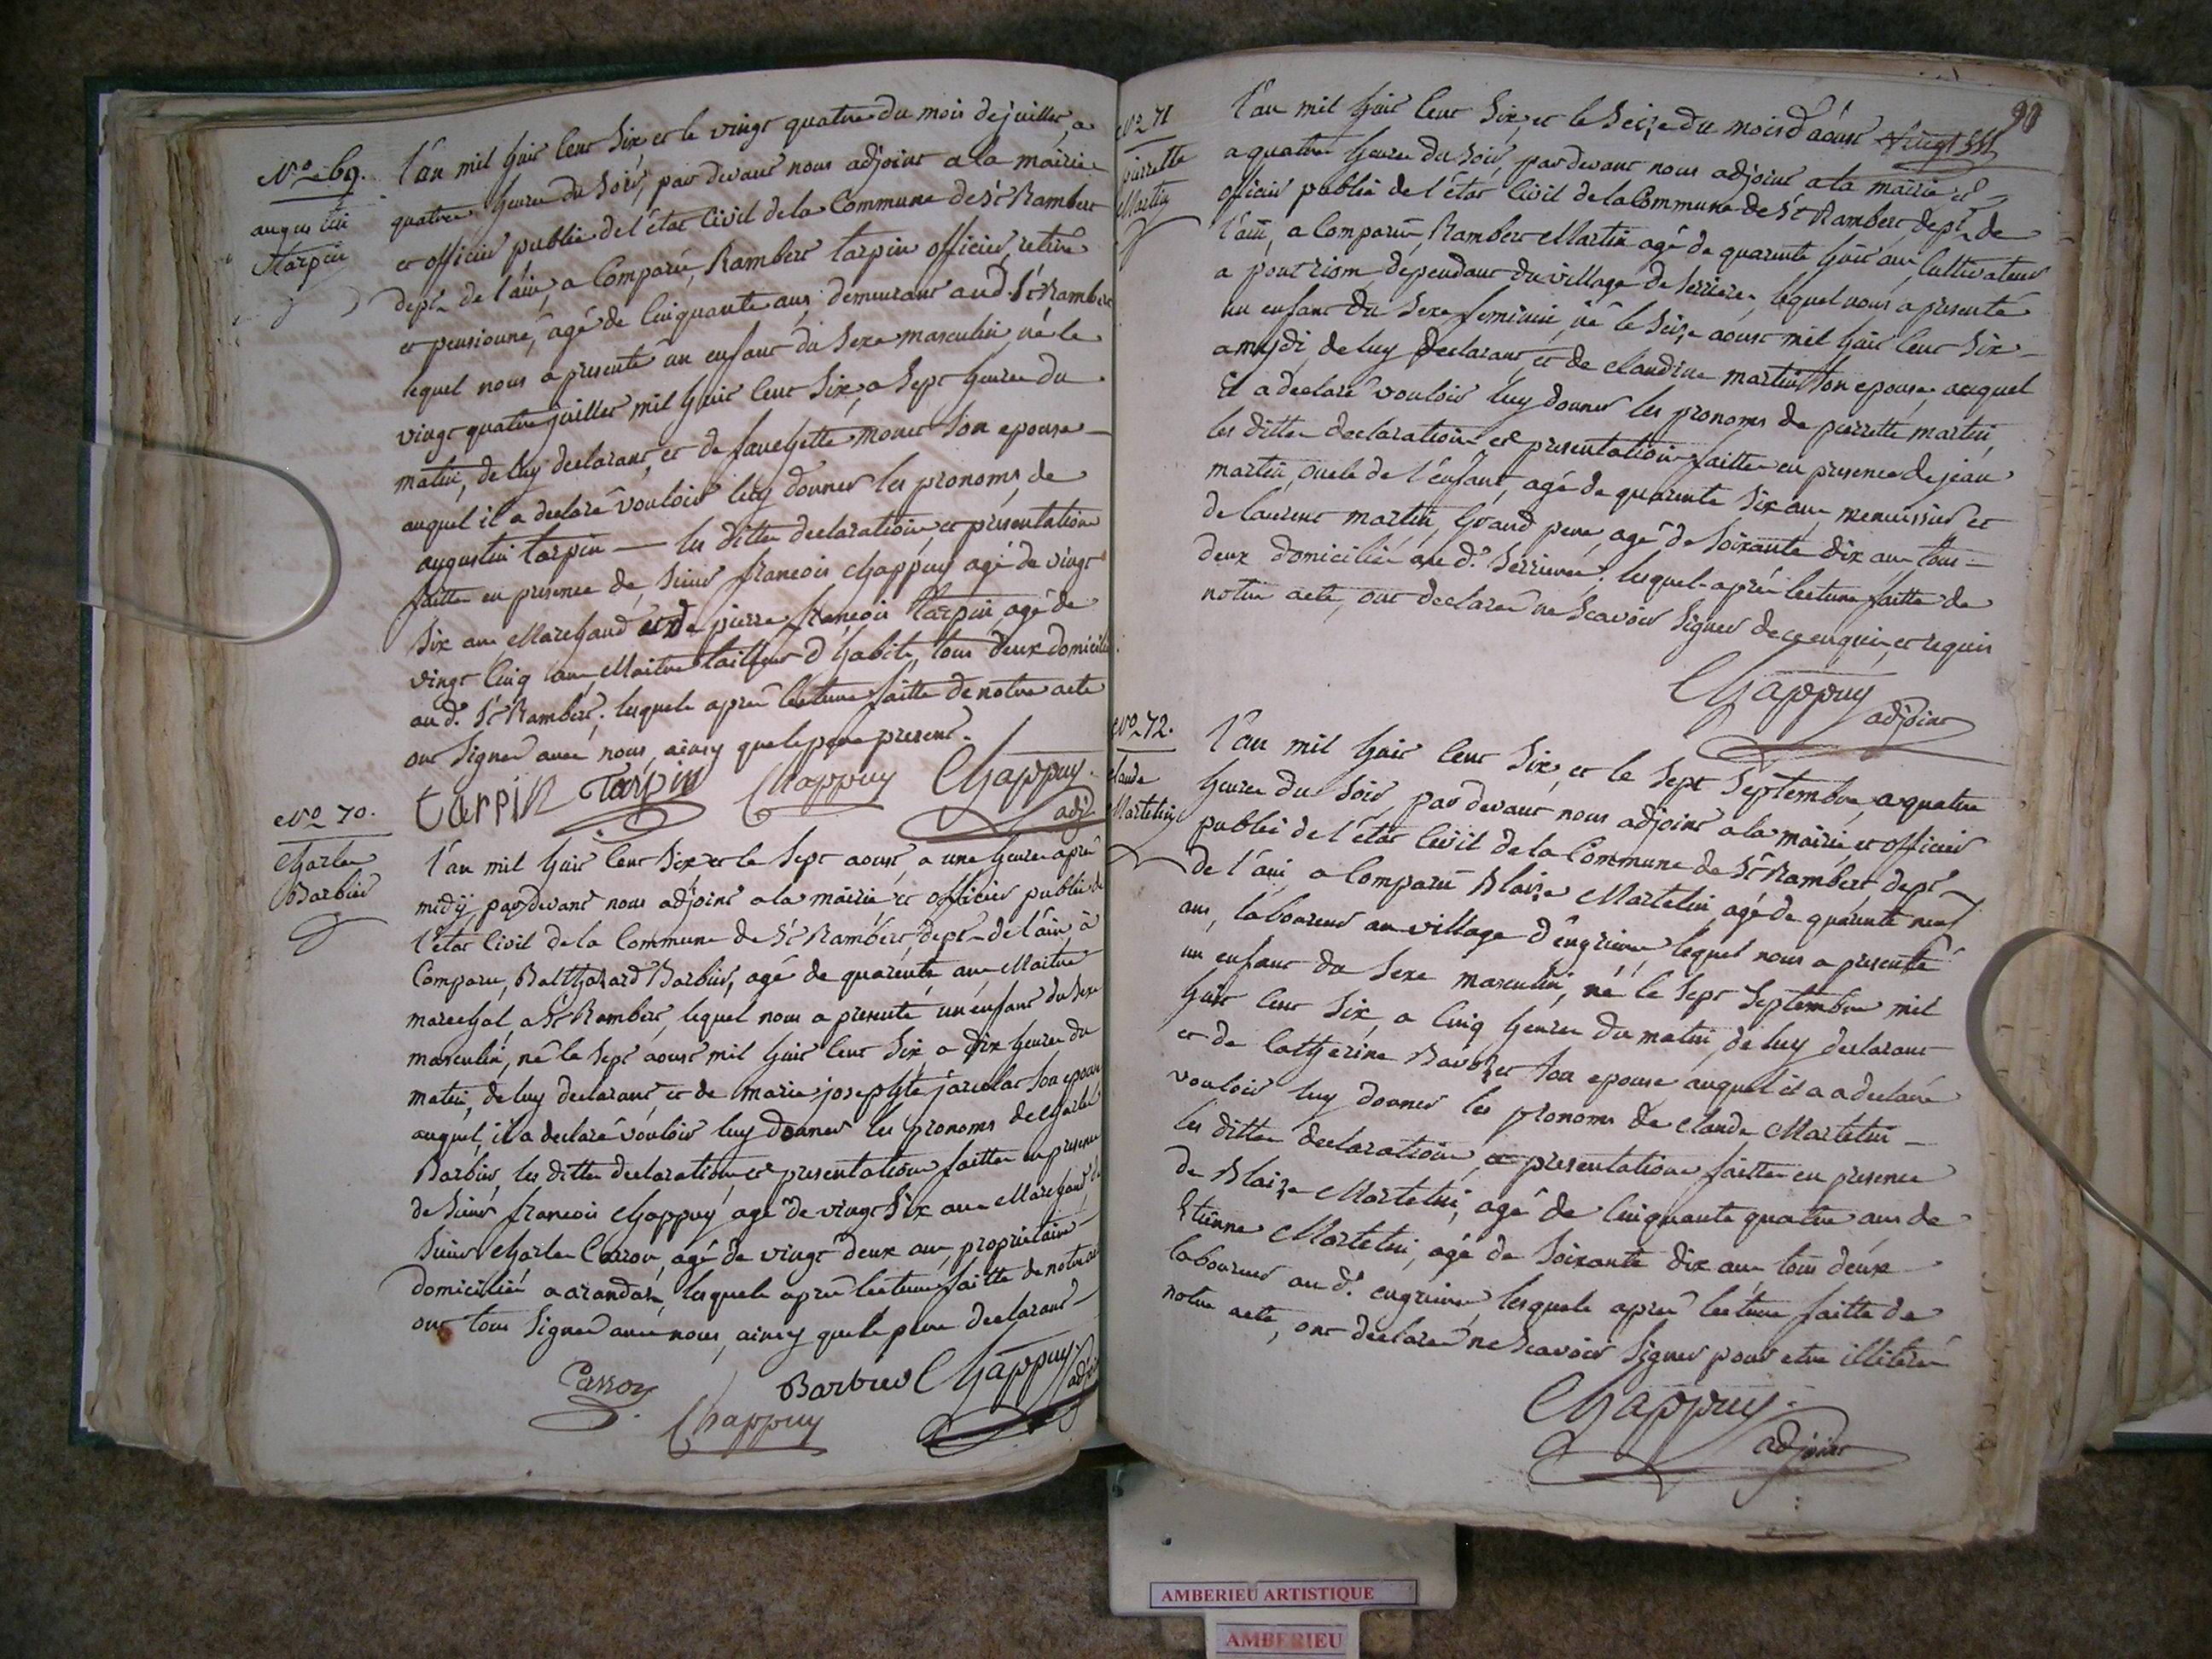 No 69.
augustin
tarpin
l'an mil huit cent six et le vingt quatre du mois de juillet, a
quatre heures du soir, par devant nous adjoint a la mairie
et officier public de l'état civil de la Commune de St Rambert
dept de l'ain, a Comparu, Rambert tarpin officier retiré
et pensionné, agé de Cinquante ans, demeurant aud. St Rambert
lequel nous a presenté un enfant du sexe masculin, né le
vingt quatre juillet mil huit cent six, a sept heures du
matin, de luy declarant, et de son epouse
auquel il a declaré vouloir luy donner les pronoms, de
augustin tarpin — les dittes declaration, et presentation
faittes en presence de, sieur francois Chappuy agé de vingt
six ans Marchand et de pierre françois tarpin, agé de
vingt cinq ans, Maitre tailleur d'habits, tous deux domiciliés
au d. St Rambert; lesquels après lecture faitte de notre acte
ont signer avec nous, ainsy que le pere present.
tarpin Tarpin Chappuy Chappuy
adjt
No 70.
Charles
Barbier
l'an mil huit cent six et le sept aoust, a une heure après
midÿ, par devant nous adjoint a la mairie et officier public de
l'état Civil de la Commune de St Rambert dept de l'ain, à
Comparu, Balthazard Barbier, agé de quarente ans, Maitre
marechal, a St Rambert, lequel nous a presenté un enfant du sexe
masculin, né le sept aoust mil huit cent six, a dix heures du
matin, de luy declarant, et de marie josephte son epouse
auquel, il a declaré vouloir luy donner les pronoms de Charles
Barbier, les dittes declaration, et presentation faittes en presence
de sieur francois Chappuy agé de vingt six ans Marchand,
sieur Charles Carron, agé de vingt deux ans, proprietaire
domicilié a arandas, lesquels après lecture faitte de notre acte
ont tous signer avec nous, ainsy que le pere declarant
Carron Barbier Chappuy
Chappuy adjt
90
No 71
pierrette
Martin
l'an mil huit cent six, et le seize du mois d'aoust
a quatre heures du soir, par devant nous adjoint a la mairie et
officier public de l'état Civil de la Commune de St Rambert, dept de
l'ain, a Comparu, Rambert Martin agé de quarente huit ans, cultivateur
a dependant du village de serrieres, lequel nous a presenté
un enfant du sexe feminin, né le seize aoust mil huit cent six
a mydi, de luy declarant, et de claudine martin son epouse, auquel
il a declaré vouloir luy donner les pronoms de pierrette martin,
les dittes declaration et presentation faittes en presence de jean
martin, oncle de l'enfant, agé de quarente six ans menuisier et
de laurent martin, Grand pere, agé de soixante dix ans tous
deux domicilié au d. serrieres. lesquels après lecture faitte de
notre acte, ont declaré ne scavoir signer de ce enquis et requis
Chappuy
adjoint
No 72.
Claude
Martelin
l'an mil huit cent six, et le sept septembre, a quatre
heures du soir, par devant nous adjoint a la mairie et officier
public de l'état Civil de la Commune de St Rambert, dept
de l'ain a Comparu Blaize Martelin, agé de quarente neuf
ans, laboureur au village d'engrieres, lequel nous a presenté
un enfant du sexe masculin, né le sept septembre mil
huit cent six, a cinq heures du matin, de luy declarant
et de Catherine son epouse auquel il a a declaré
vouloir luy donner les pronoms de Claude Martelin —
les dittes declaration et presentation faittes en presence
de Blaize Martelin, agé de cinquante quatre ans de
Etienne Martelin, agé de soixante dix ans tous deux
laboureur au d. engrieres, lesquels après lecture faitte de
notre acte, ont declaré ne scavoir signer pour etre illiteré
Chappuy
adjoint
AMBERIEU ARTISTIQUE
AMBERIEU